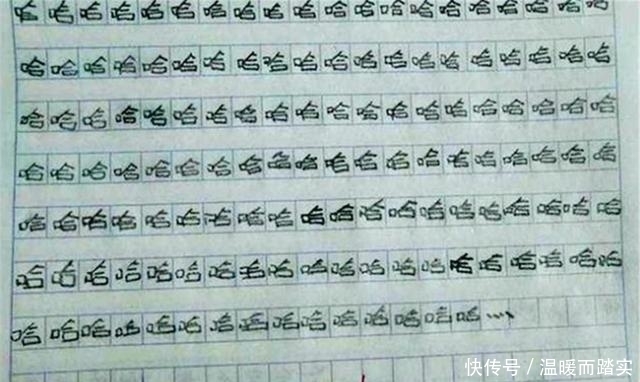 哈哈哈哈哈哈哈哈哈哈哈哈哈哈哈哈哈哈哈哈
哈哈哈哈哈哈哈哈哈哈哈哈哈哈哈哈哈哈哈哈
哈哈哈哈哈哈哈哈哈哈哈哈哈哈哈哈哈哈哈哈
哈哈哈哈哈哈哈哈哈哈哈哈哈哈哈哈哈哈哈哈
哈哈哈哈哈哈哈哈哈哈哈哈哈哈哈哈哈哈哈哈
哈哈哈哈哈哈哈哈哈哈哈哈哈哈哈哈哈哈哈哈
哈哈哈哈哈哈哈哈哈哈哈哈哈哈哈……
快传号/温暖而踏实